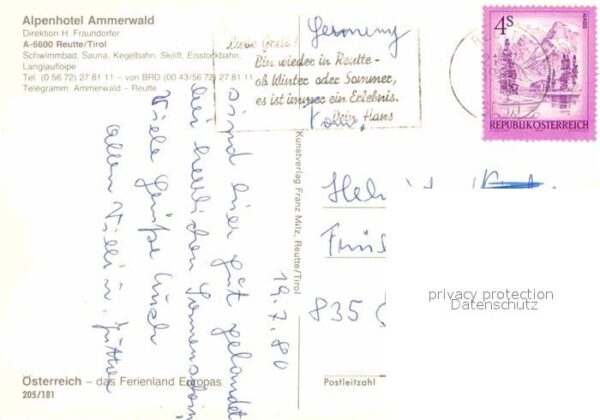 Alpenhotel Ammerwald
Direktion H. Fraundorfer
A-6600 Reutte/Tirol
Schwimmbad, Sauna, Kegelbahn, Skilift, Eisstockbahn,
Langlaufloipe
Tel. (0 56 72) 27 8 11 – von BRD (00 43/56 72) 27 8 11
Telegramm: Ammerwald – Reutte
Germany
Liebe Gretl!
Bin wieder in Reutte -
ob Winter oder Sommer,
es ist immer ein Erlebnis.
Dein Hans
4s
REPUBLIK ÖSTERREICH
19.7.80
sind hier gut gelandet
bei herrlichen Sonnenschein
Viele Grüße Euch
allen Willi u.
Kunstverlag Franz Milz, Reutte/Tirol
835
privacy protection
Datenschutz
Österreich – das Ferienland Europas
205/181
Postleitzahl